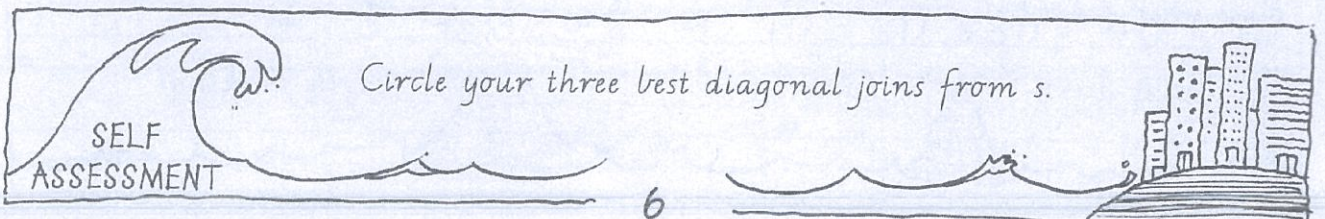 Circle your three best diagonal joins from s.
SELF
ASSESSMENT
6